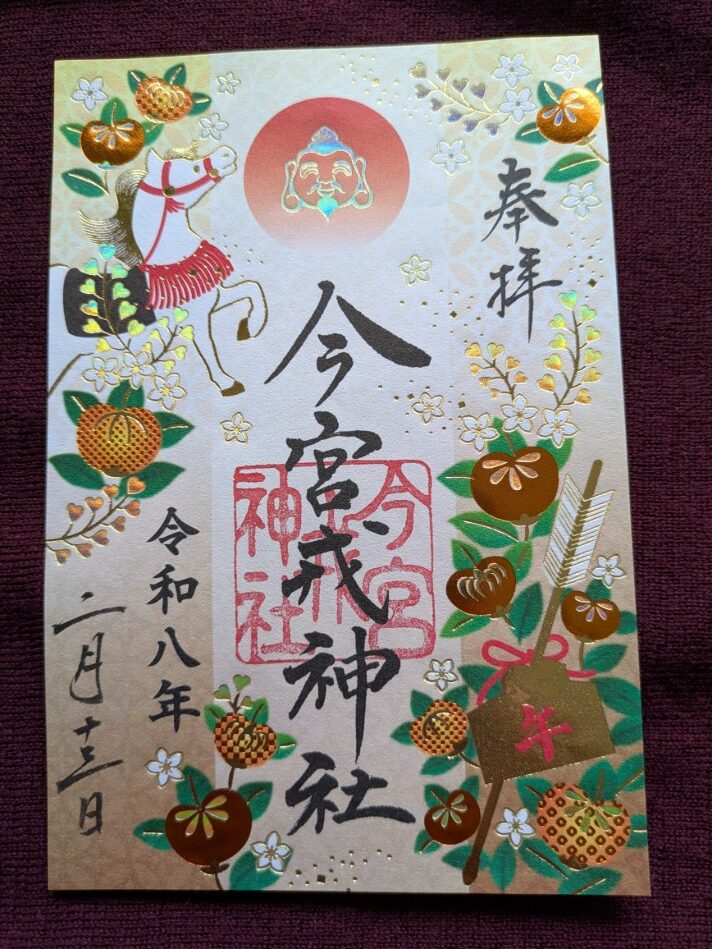 奉拝
今宮戎神社
今宮戎神社
午
令和八年
二月十三日